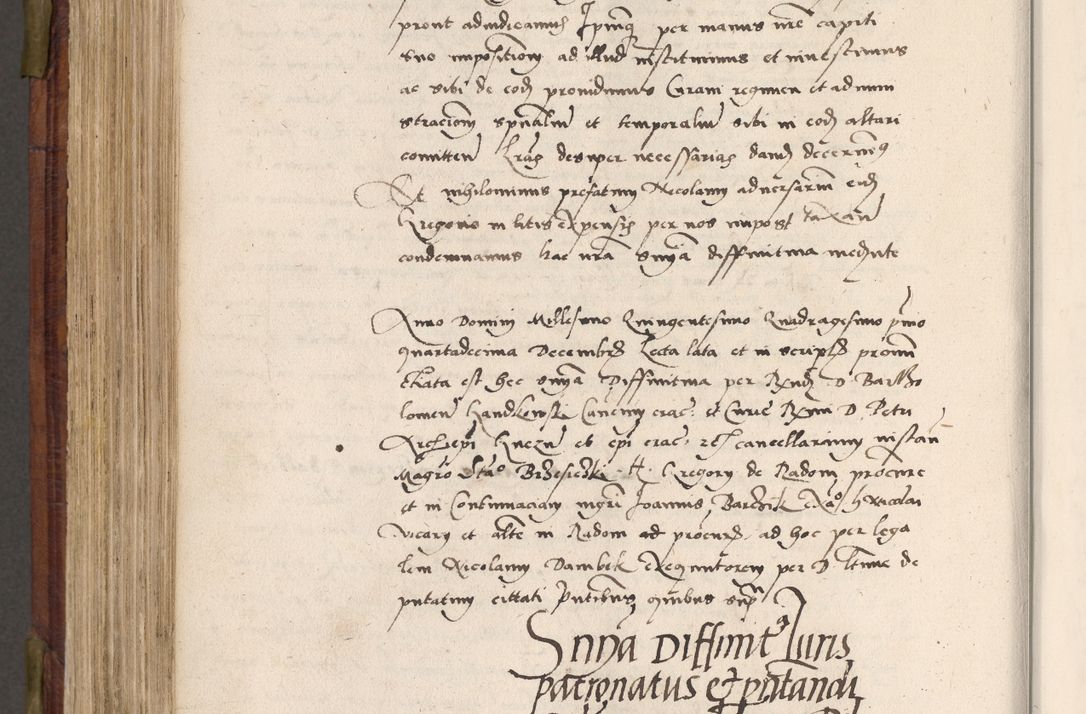 pront adiudicamus Ipsumq per manus nre capiti
suo impositionem ad illud instituimus et investimus
ac sibi de eod providimus Curam regimen et admini
strationem spualium et temporalium sibi in eod altari
comitten lras desuper necessarias dand decernimus
Et nihilominus prefatum Nicolaum adversarium eid
Gregorio in litis expensis per nos impost taxan
condemnamus hac nra snia diffinitiva mediante
Anno Domini Millesimo Quingentesimo Quadragesimo primo
quartadecima Decembris Lecta lata et in scriptis pronun
ctiata est hec snia Diffinitiva per Rvnd D Bartho
lomeu Gandkowski Canonicum crac et Curie Rvmi D Petri
Archiepi Gnezn et epi crac cancellarium instan
Magro Stan Brzesiczki Gregory de Radom procure
et in Contumaciam mgri Joannis Barczik Nicolai
vicary et alte in Radom ad procurs ad hoc per lega
lem Nicolaum Dambek exequutorem per D Ltime de
putatum cittati putibus quibus supra
Snia Diffinit Iuris
patronatus et putandi